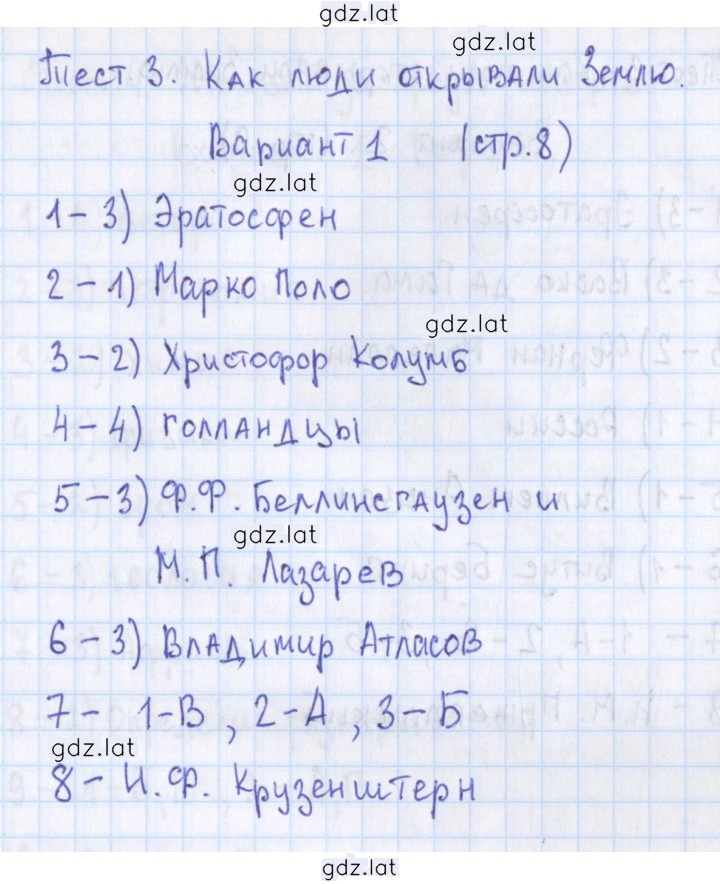 gdz.lat
gdz.lat
Тест 3. Как люди открывали Землю.
Вариант 1 (стр. 8)
gdz.lat
1 – 3) Эратосфен
2 – 1) Марко Поло
gdz.lat
3 – 2) Христофор Колумб
4 – 4) голландцы
5 – 3) Ф.Ф. Беллинсгаузен и
gdz.lat
М.П. Лазарев
6 – 3) Владимир Атласов
7 – 1-В, 2-А, 3-Б
gdz.lat
8 – И.Ф. Крузенштерн
gdz.lat